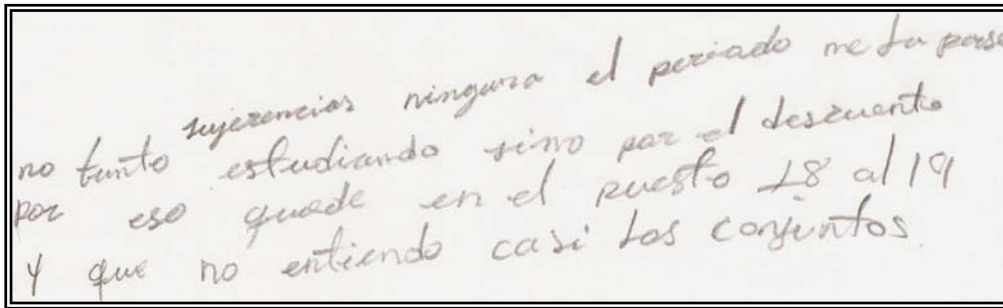 sujerencias ninguna el periado me la pase
no tanto estudiando sino por el descuento
por eso quede en el puesto 18 al 19
y que no entiendo casi los conjuntos.